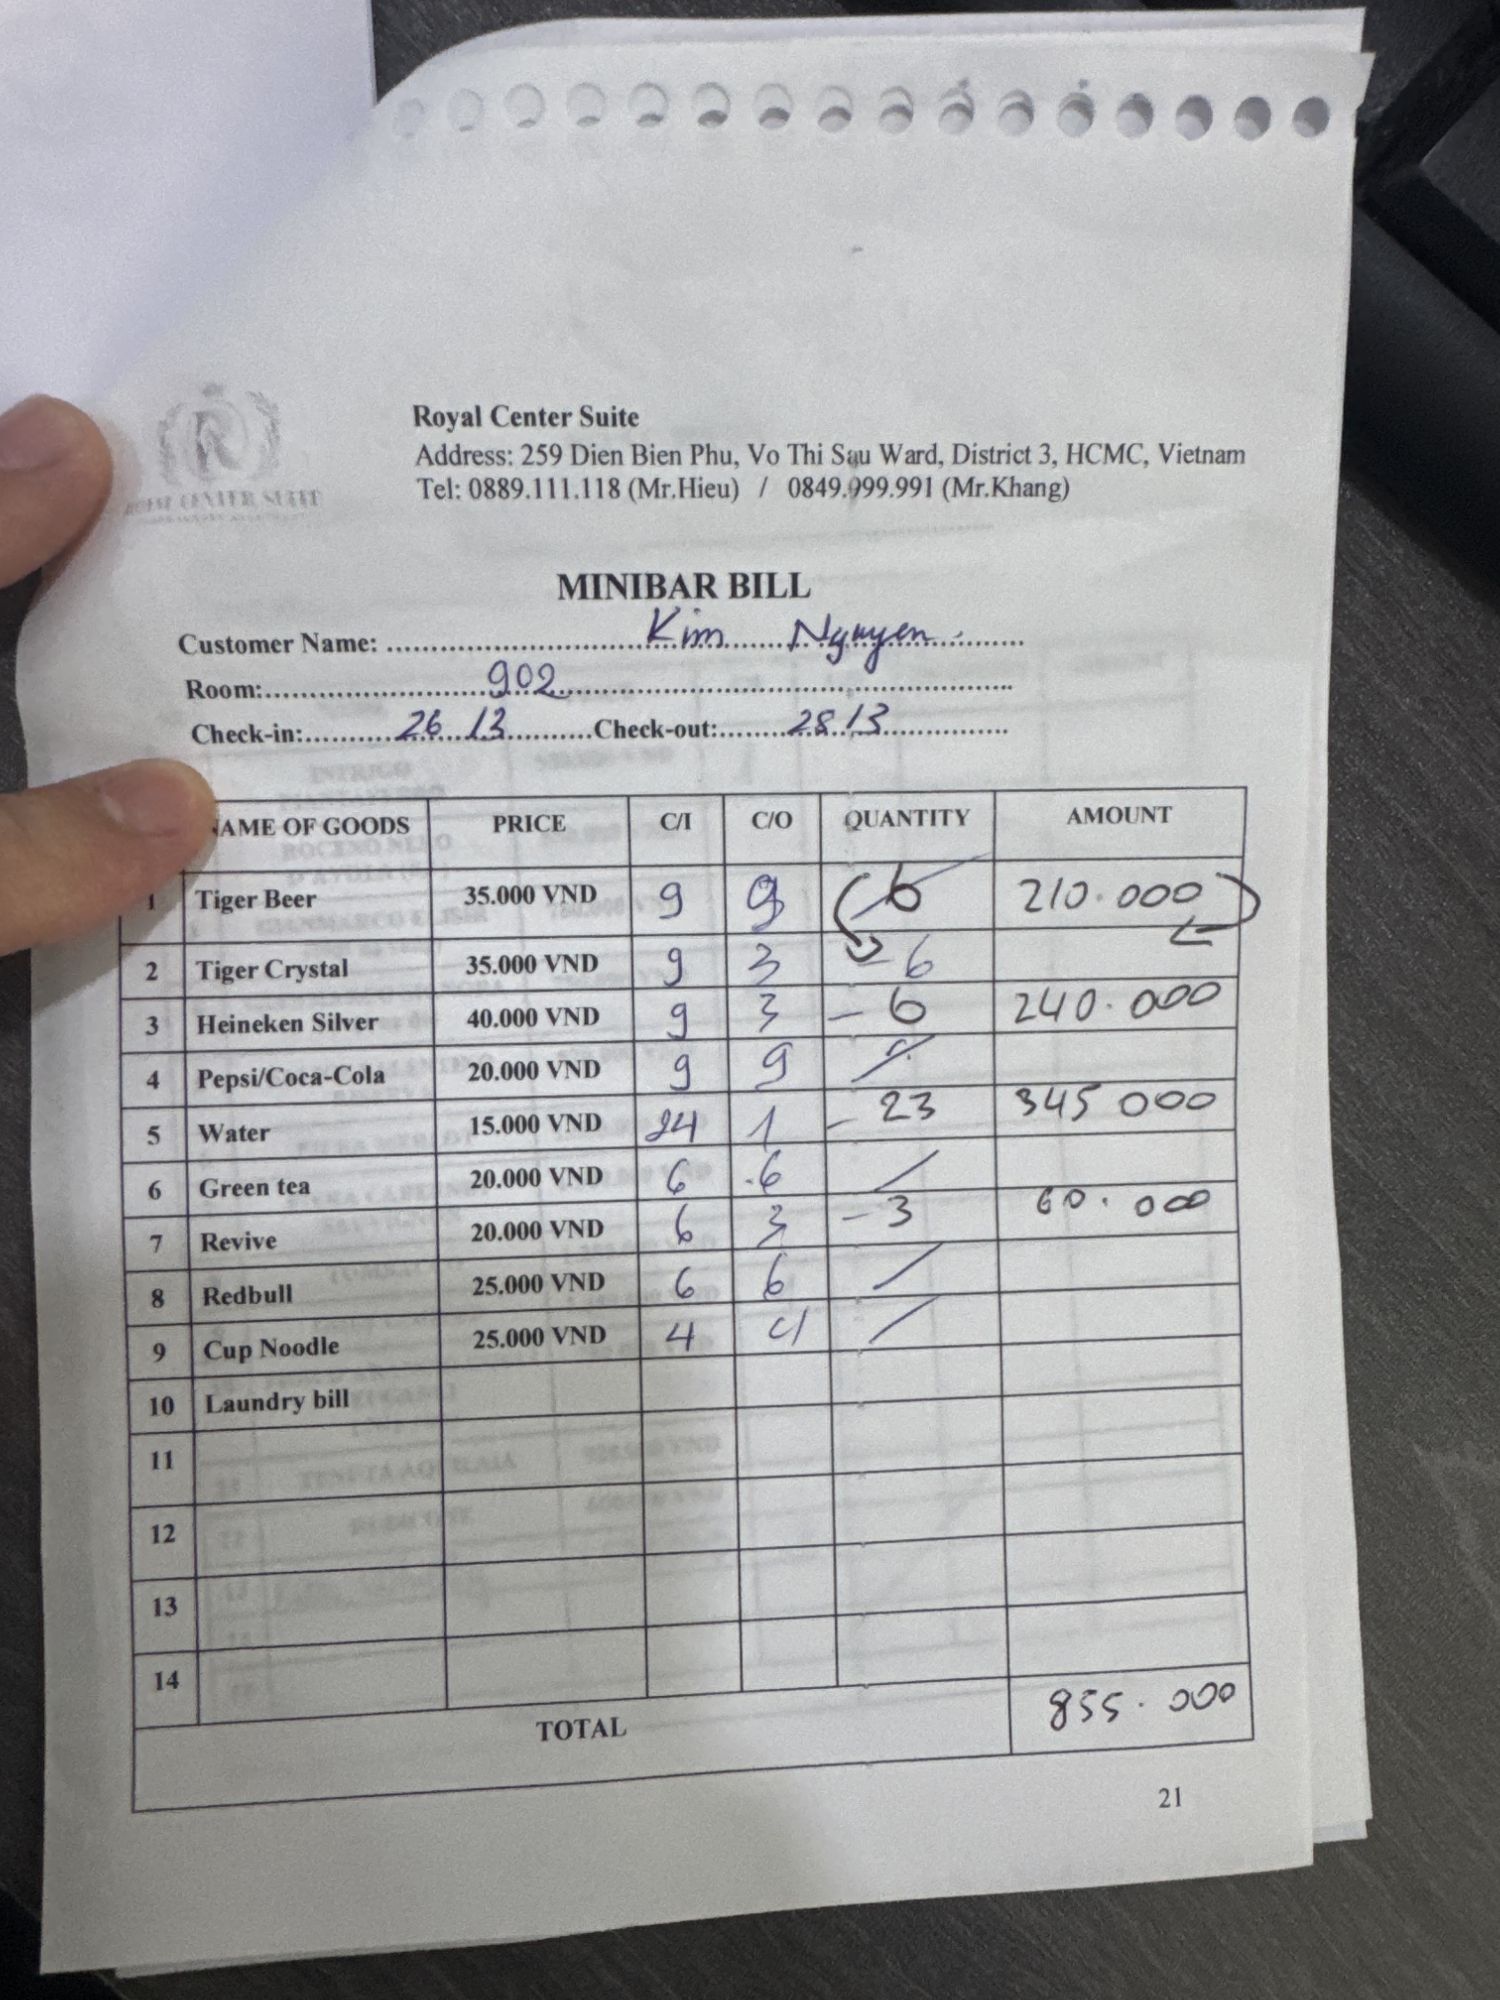 ROYAL CENTER SUITE
Royal Center Suite
Address: 259 Dien Bien Phu, Vo Thi Sau Ward, District 3, HCMC, Vietnam
Tel: 0889.111.118 (Mr.Hieu) / 0849.999.991 (Mr.Khang)
MINIBAR BILL
Customer Name: Kim Nguyen
Room: 902
Check-in: 26/3 Check-out: 28/3
NAME OF GOODS PRICE C/I C/O QUANTITY AMOUNT
1 Tiger Beer 35.000 VND 9 9 6 210.000
2 Tiger Crystal 35.000 VND 9 3 - 6
3 Heineken Silver 40.000 VND 9 3 - 6 240.000
4 Pepsi/Coca-Cola 20.000 VND 9 9 /
5 Water 15.000 VND 24 1 - 23 345 000
6 Green tea 20.000 VND 6 .6 /
7 Revive 20.000 VND 6 3 - 3 60.000
8 Redbull 25.000 VND 6 6 /
9 Cup Noodle 25.000 VND 4 4 /
10 Laundry bill
11
12
13
14
TOTAL 855.000
21